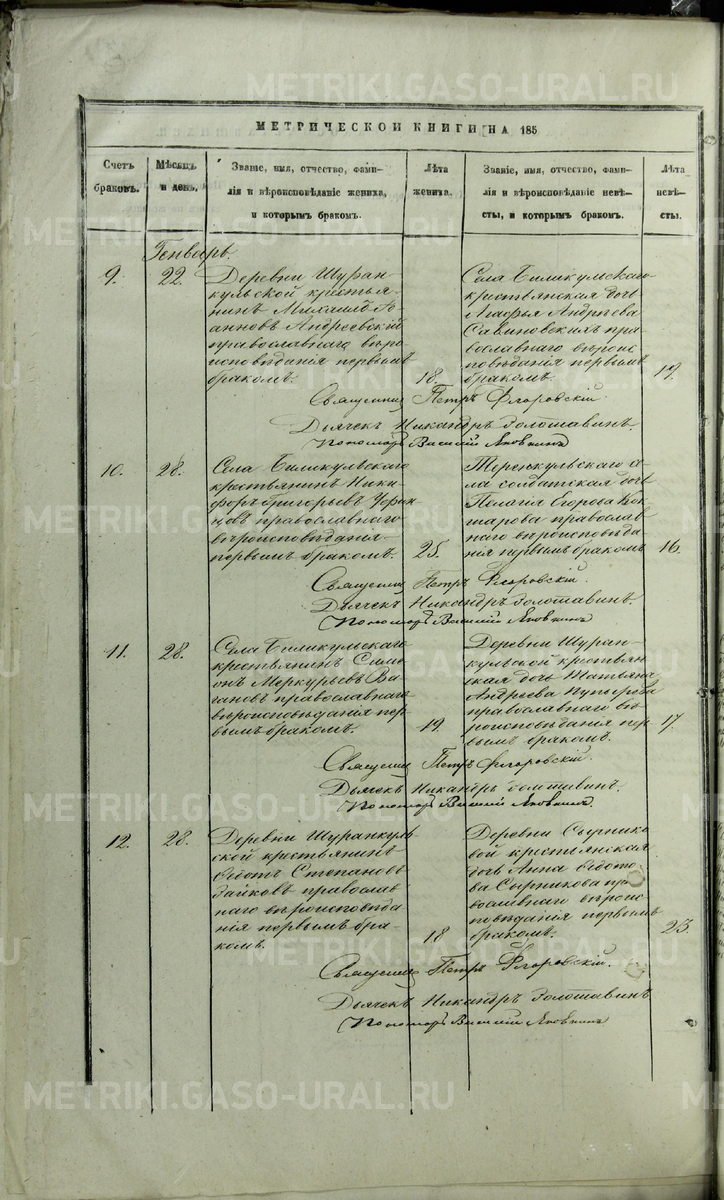 METRIKI.GASO-URAL.RU
МЕТРИЧЕСКОЙ КНИГИ НА 185
Счетъ браковъ.
Мѣсяцъ и день.
Званіе, имя, отчество, фами-
лія и вѣроисповѣданіе жениха,
и которымъ бракомъ.
Лѣта жениха.
Званіе, имя, отчество, фами-
лія и вѣроисповѣданіе невѣ-
сты, и которымъ бракомъ.
Лѣта невѣ-
сты.
Генварь.
9.
22.
Деревни Шуран-
кульской крестья-
нинъ Михаилъ Іо-
анновъ Андреевскій
православнаго вѣро-
исповѣданія первымъ
бракомъ.
18.
Села Биликульскаго
крестьянская дочь
Агафья Андреева
Савиновскихъ пра-
вославнаго вѣроис-
повѣданія первымъ
бракомъ
19.
Священникъ Петръ Флоровскій.
Дьячекъ Никандръ Золотавинъ.
Пономарь Василій Яковкинъ
10.
28.
Села Биликульскаго
крестьянинъ Ники-
форъ Григорьевъ
православнаго
вѣроисповѣданія
первымъ бракомъ.
25.
Теренкульскаго се-
ла солдатская дочь
Пелагія Егорова
православ-
наго вѣроисповѣда-
нія первымъ бракомъ
16.
Священникъ Петръ Флоровскій.
Дьячекъ Никандръ Золотавинъ.
Пономарь Василій Яковкинъ
11.
28.
Села Биликульскаго
крестьянинъ Симе-
онъ Меркурьевъ Ва-
гановъ православнаго
вѣроисповѣданія пер-
вымъ бракомъ.
19.
Деревни Шуран-
кульской крестьян-
ская дочь Татьяна
Андреева Пупырева
православнаго вѣ-
роисповѣданія пер-
вымъ бракомъ.
17.
Священникъ Петръ Флоровскій.
Дьячекъ Никандръ Золотавинъ.
Пономарь Василій Яковкинъ.
12.
28.
Деревни Шуранкуль-
ской крестьянинъ
Ѳедотъ Степановъ
Зайковъ православ-
наго вѣроисповѣда-
нія первымъ бра-
комъ.
18
Деревни Сырнико-
вой крестьянская
дочь Анна Ѳедото-
ва Сырникова пра-
вославнаго вѣроис-
повѣданія первымъ
бракомъ.
23.
Священникъ Петръ Флоровскій.
Дьячекъ Никандръ Золотавинъ
Пономарь Василій Яковкинъ
METRIKI.GASO-URAL.RU